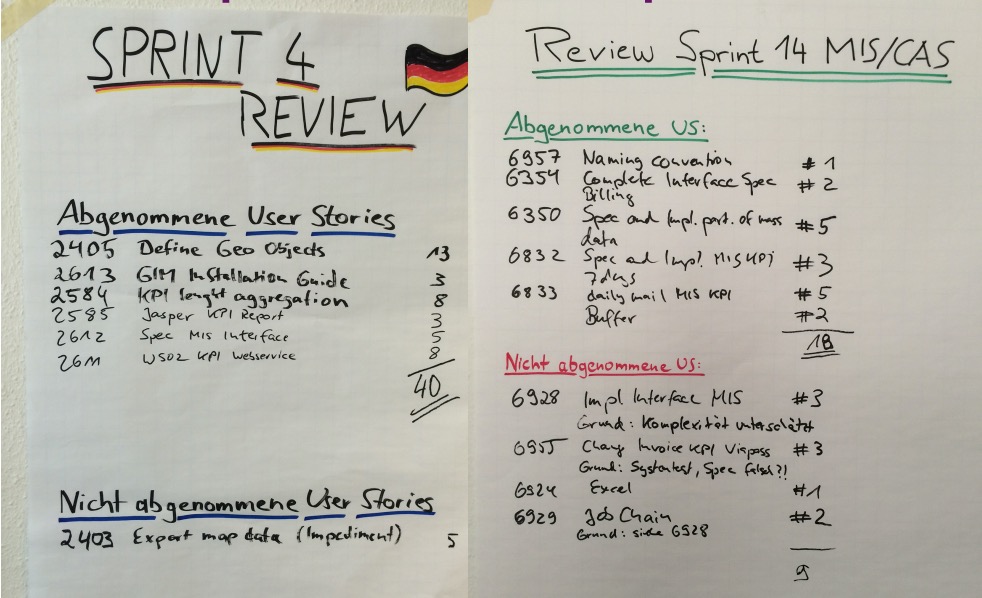 SPRINT 4
REVIEW
Abgenommene User Stories
2405 Define Geo Objects 13
2613 GIM Installation Guide 3
2584 KPI lenght aggregation 8
2585 Jasper KPI Report 3
2612 Spec MIS Interface 5
2611 WSO2 KPI Webservice 8
40
Nicht abgenommene User Stories
2403 Export map data (Impediment) 5
Review Sprint 14 MIS/CAS
Abgenommene US:
6957 Naming convention # 1
6354 Complete Interface Spec # 2
Billing
6350 Spec and Impl. part. of mass #5
data
6832 Spec and Impl. MIS KPI #3
7days
6833 daily mail MIS KPI #5
Buffer #2
18
Nicht abgenommene US:
6928 Impl Interface MIS #3
Grund: Komplexität unterschätzt
6955 Invoice KPI Viapass #3
Grund: Systemtest, Spec falsch?!
6924 Excel #1
6929 Job Chain #2
Grund: siehe 6928
9